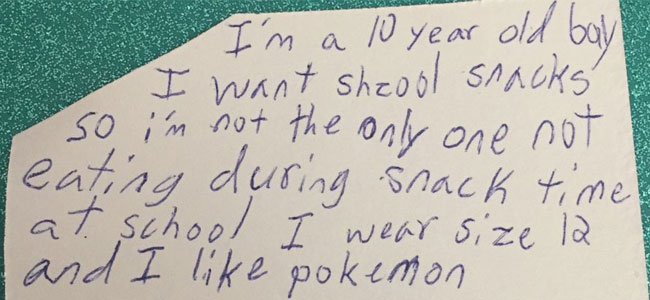 I'm a 10 year old boy
I want shzool snacks
so i'm not the only one not
eating during snack time
at school I wear size 12
and I like pokemon